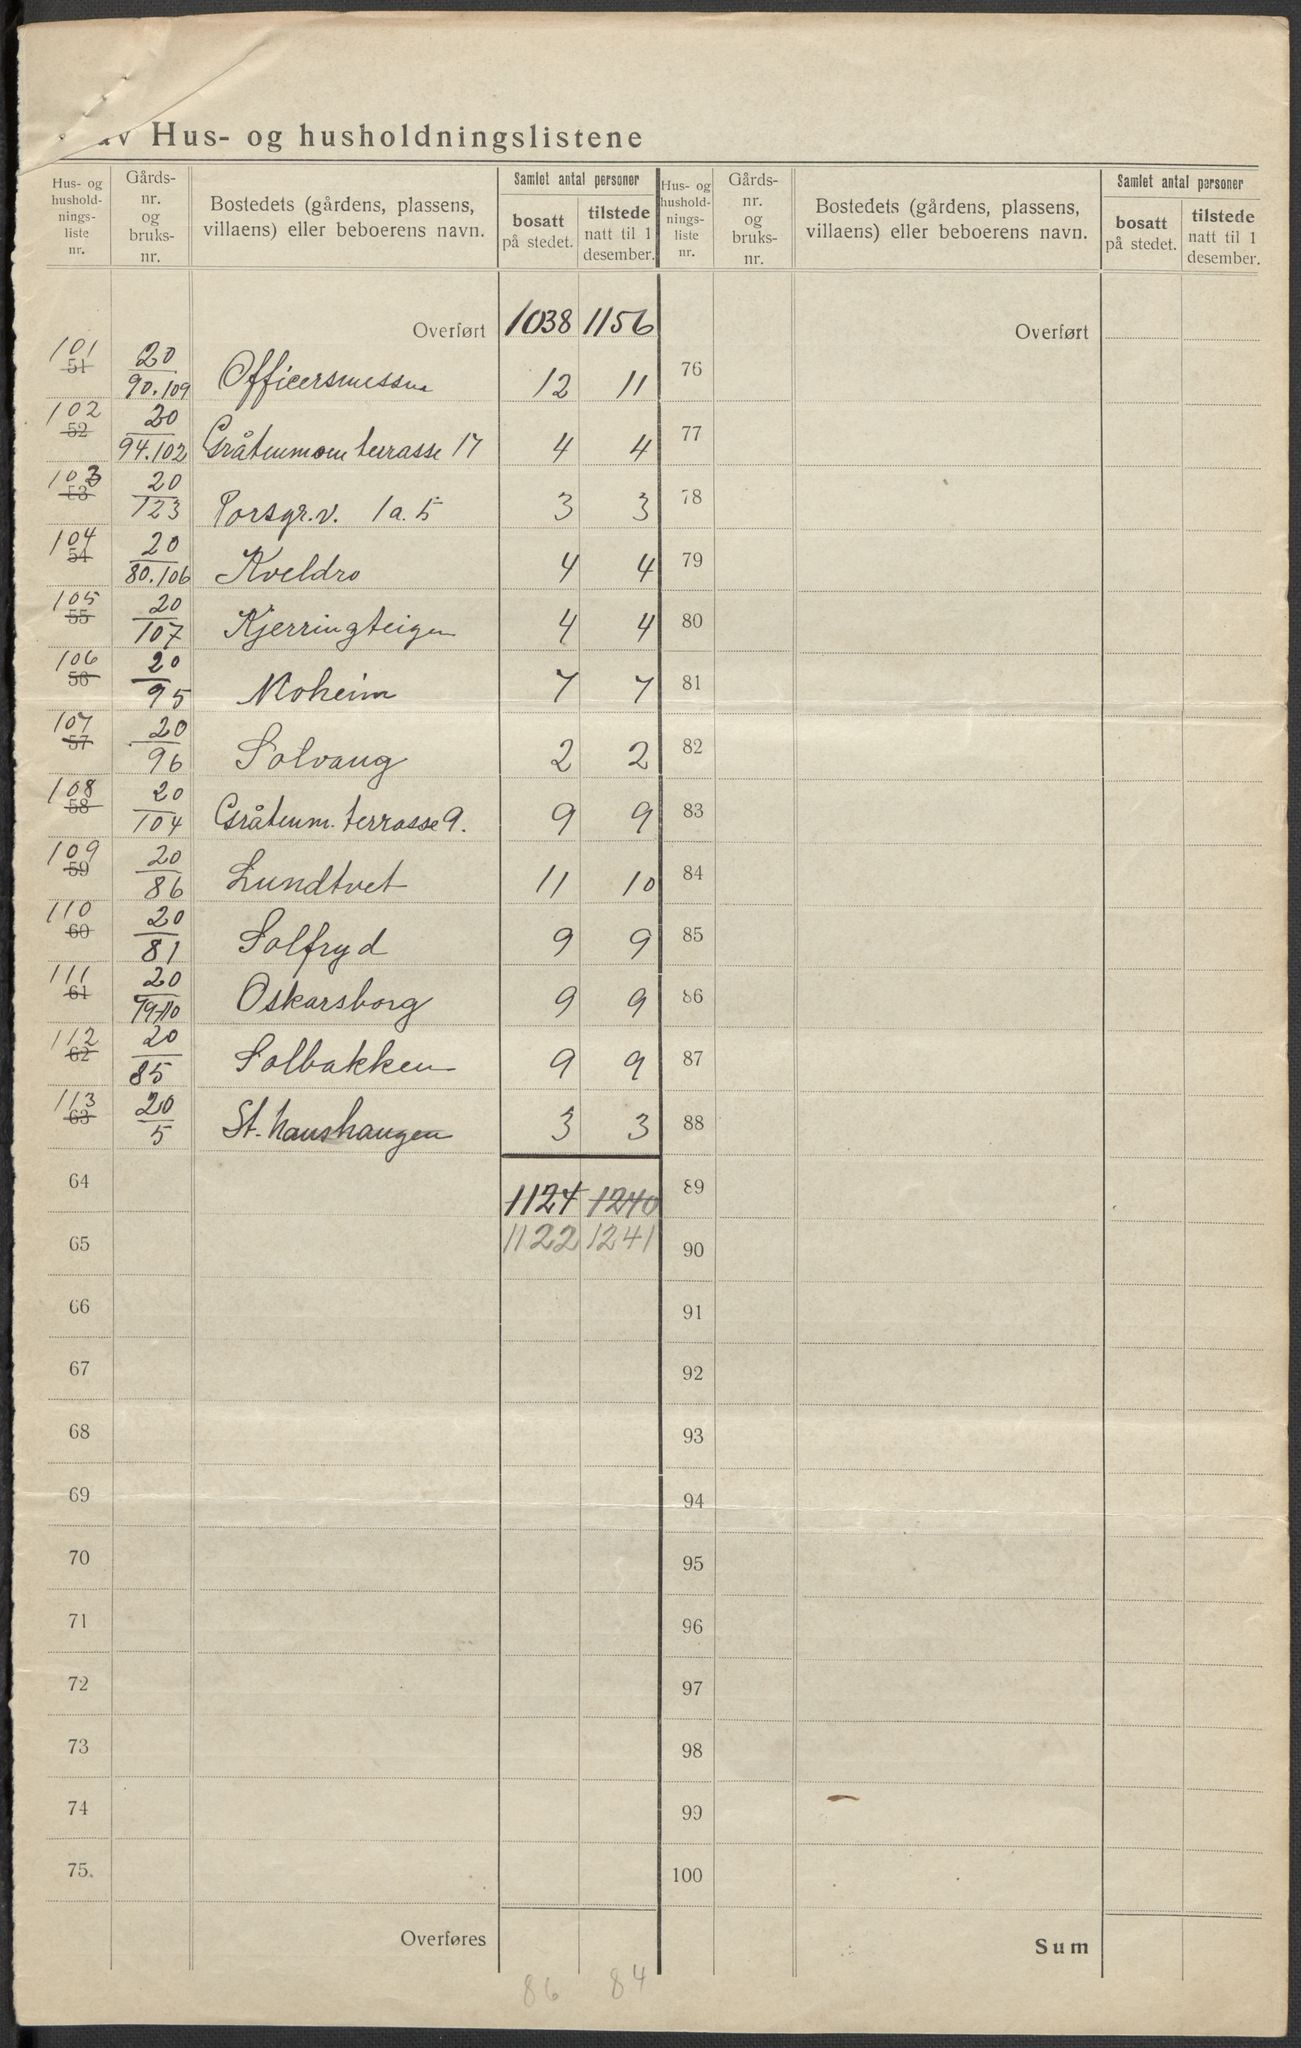 av Hus- og husholdningslistene
Hus- og husholdnings-liste nr. | Gårds-nr. og bruks-nr. | Bostedets (gårdens, plassens, villaens) eller beboerens navn. | Samlet antal personer | bosatt på stedet. | tilstede natt til 1 desember. | Hus- og husholdnings-liste nr. | Gårds-nr. og bruks-nr. | Bostedets (gårdens, plassens, villaens) eller beboerens navn. | Samlet antal personer | bosatt på stedet. | tilstede natt til 1 desember.
Overført 1038 1156 Overført
101 51 20/90.109 Officersmessen 12 11 76
102 52 20/94.102 Gråtenmoen terrasse 17 4 4 77
103 53 20/123 Porsgr.v. 1 a. 5 3 3 78
104 54 20/80.106 Kveldro 4 4 79
105 55 20/107 Kjerringteigen 4 4 80
106 56 20/95 Moheim 7 7 81
107 57 20/96 Solvang 2 2 82
108 58 20/104 Gråtenm. terrasse 9. 9 9 83
109 59 20/86 Lundtvet 11 10 84
110 60 20/81 Solfryd 9 9 85
111 61 20/79-110 Oskarsborg 9 9 86
112 62 20/85 Solbakken 9 9 87
113 63 20/5 St. hanshaugen 3 3 88
64 1124 1240 89
65 1122 1241 90
66 91
67 92
68 93
69 94
70 95
71 96
72 97
73 98
74 99
75. 100
Overføres Sum
86 84